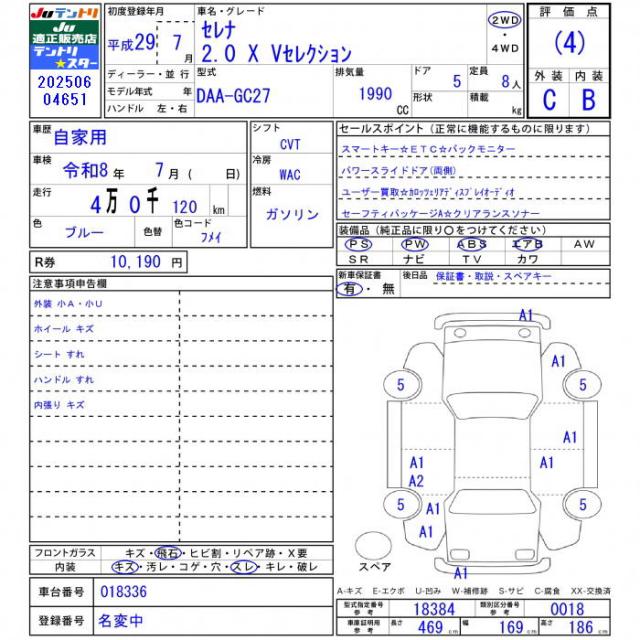 Juテントリ
Ju
適正販売店
テントリ
★スター
202506
04651
初度登録年月
平成29 7
年 月
ディーラー・並 行
モデル年式 年
ハンドル 左・右
車名・グレード
セレナ
2.0 X Vセレクション
2WD
・
4WD
型式
DAA-GC27
排気量
1990
CC
ドア
5
形状
定員
8人
積載
kg
評 価 点
(4)
外 装 内 装
C B
車歴
自家用
車検
令和8年 7月 ( 日)
走行
4万 0千 120 km
色
ブルー
色替
色コード
フメイ
シフト
CVT
冷房
WAC
燃料
ガソリン
R券 10,190 円
セールスポイント (正常に機能するものに限ります)
スマートキー☆ETC☆バックモニター
パワースライドドア(両側)
ユーザー買取☆カロッツェリアディスプレイオーディオ
セーフティパッケージA☆クリアランスソナー
装備品 (純正品に限り○をつけてください)
PS PW ABS エアB AW
SR ナビ TV カワ
新車保証書
有・無
後日品 保証書・取説・スペアキー
注意事項申告欄
外装 小A・小U
ホイール キズ
シート すれ
ハンドル すれ
内張り キズ
フロントガラス キズ・飛石・ヒビ割・リペア跡・X要
内装 キズ・汚レ・コゲ・穴・スレ・キレ・破レ
車台番号 018336
登録番号 名変中
A1
A1
5 5
A1
A1 A1
A2
5 5
A1
A1
A1
スペア
A-キズ E-エクボ U-凹み W-補修跡 S-サビ C-腐食 XX-交換済
型式指定番号
参考
18384
類別区分番号
参考
0018
車庫証明用
参考
長さ 469 cm 幅 169 cm 高さ 186 cm